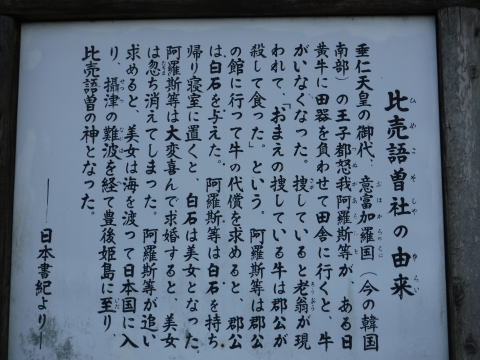 比売語曽社の由来
垂仁天皇の御代、意富加羅国（今の韓国
南部）の王子都怒我阿羅斯等が、ある日
黄牛に田器を負わせて田舎に行くと、牛
がいなくなった。捜していると老翁が現
われて、「おまえの捜している牛は郡公が
殺して食った。」という。阿羅斯等は郡公
の館に行って牛の代償を求めると、郡公
は白石を与えた。阿羅斯等は白石を持ち
帰り寝室に置くと、白石は美女となった。
阿羅斯等は大変喜んで求婚すると、美女
は忽ち消えてしまった。阿羅斯等が追い
求めると、美女は海を渡って日本国に入
り、摂津の難波を経て豊後姫島に至り、
比売語曽の神となった。
――日本書紀より――